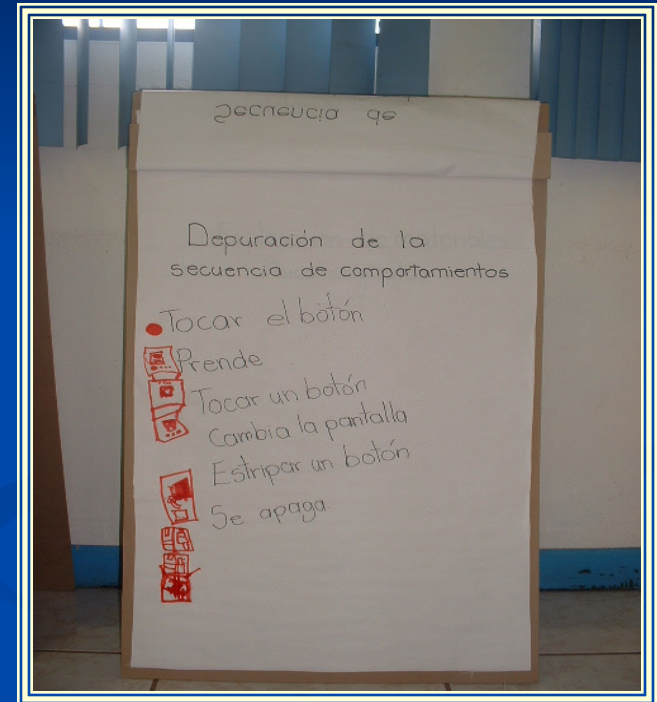 Secuencia de
Depuración de la
secuencia de comportamientos
Tocar el botón
Prende
Tocar un botón
Cambia la pantalla
Estripar un botón
Se apaga